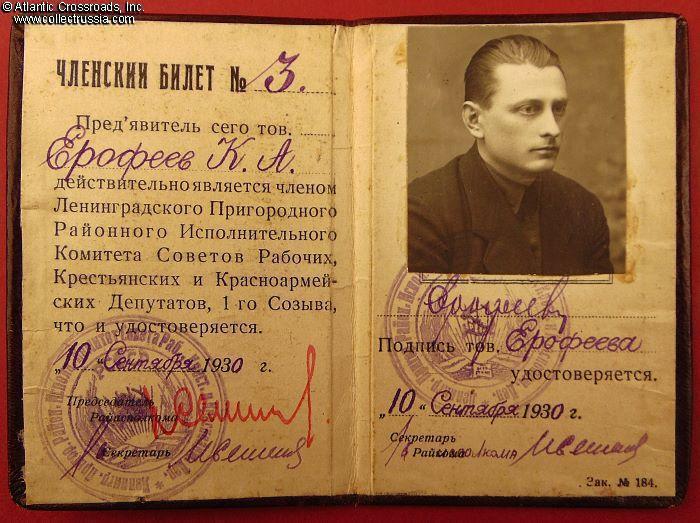 © Atlantic Crossroads, Inc.
www.collectrussia.com
ЧЛЕНСКИЙ БИЛЕТ № 3.
Пред'явитель сего тов.
Ерофеев К. А.
действительно является членом
Ленинградского Пригородного
Районного Исполнительного
Комитета Советов Рабочих,
Крестьянских и Красноармей-
ских Депутатов, 1-го Созыва,
что и удостоверяется.
„10" Сентября 1930 г.
Председатель
Райисполкома
Секретарь
Подпись тов. Ерофеева
удостоверяется.
„10" Сентября 1930 г.
Секретарь
Райисполкома
Зак. № 184.
© Atlantic Crossroads, Inc.
www.collectrussia.com